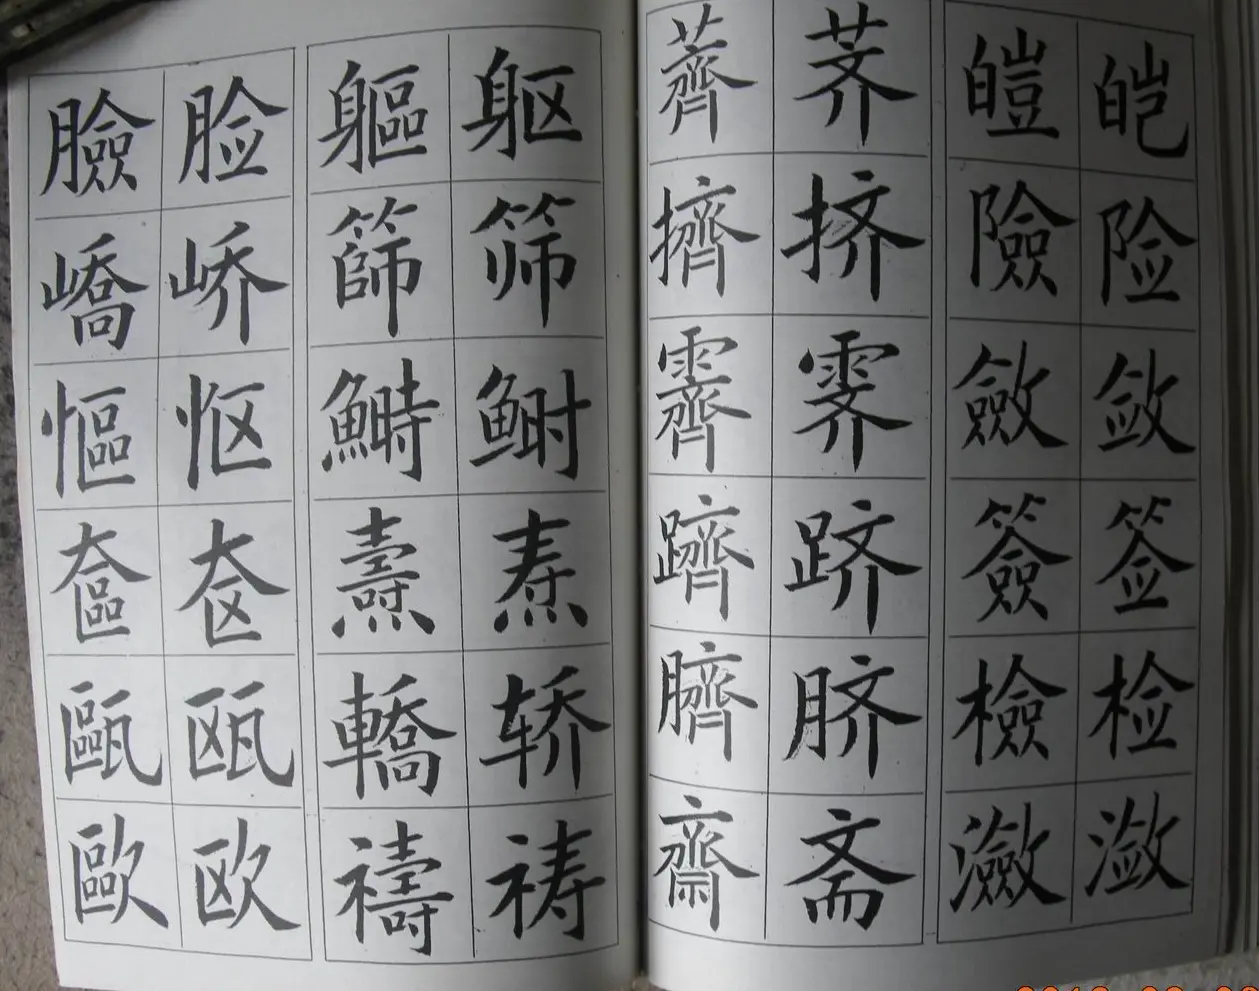 皑险敛签检潋
皚險斂簽檢瀲
荠挤霁跻脐斋
薺擠霽躋臍齋
躯筛鲥焘轿祷
軀篩鰣燾轎禱
脸峤怄奁瓯欧
臉嶠慪奩甌歐